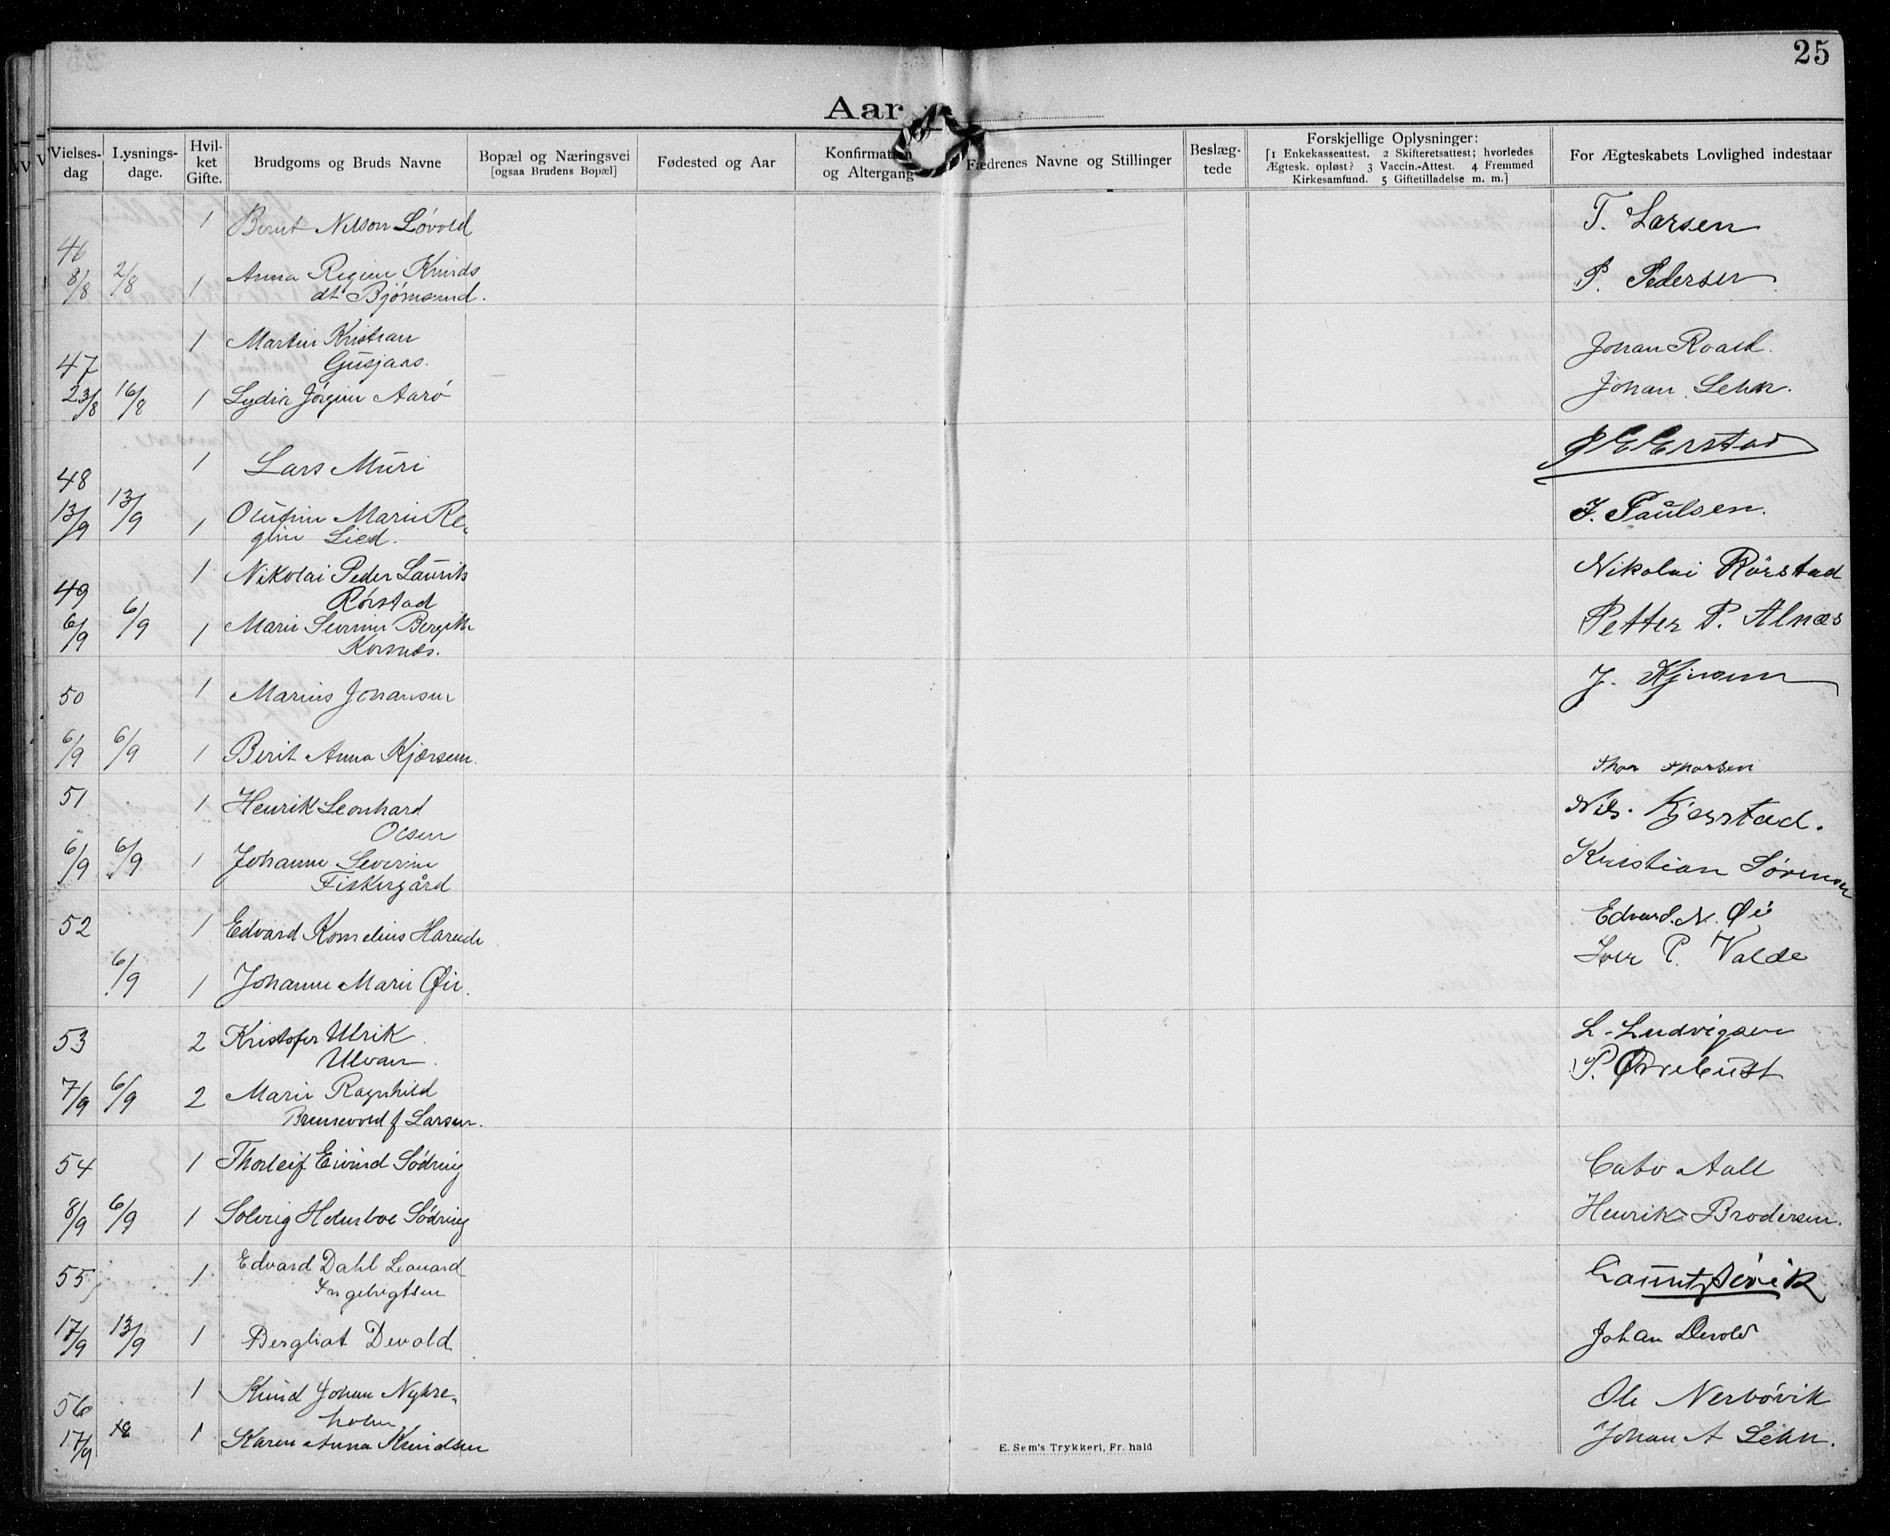 25
Aar
Vielses-dag
Lysnings-dage.
Hvil-ket Gifte.
Brudgoms og Bruds Navne
Bopæl og Næringsvei
[ogsaa Brudens Bopæl]
Fødested og Aar
Konfirmation og Altergang
Fædrenes Navne og Stillinger
Beslæg-tede
Forskjellige Oplysninger:
[1 Enkekasseattest. 2 Skifteretsattest; hvorledes
Ægtesk. opløst? 3 Vaccin.-Attest. 4 Fremmed
Kirkesamfund. 5 Giftetilladelse m. m.]
For Ægteskabets Lovlighed indestaar
1 Bernt Nilson Løvold T. Larsen
46
8/8 2/8 1 Anna Regine Knuds P. Pedersen
dt Bjørnsund.
1 Martin Kristian Johan Roald.
47 Gusjaas.
23/8 16/8 1 Lydia Jørgine Aarø Johan Lehn.
1 Lars Muri P E Erstad
48
13/9 13/9 1 Olufine Marie Re- J. Paulsen.
gine Lied.
1 Nikolai Peder Laurits Nikolai Rörstad
49 Rørstad
6/9 6/9 1 Marie Severine Bergitte Petter P. Alnæs
Kornæs.
50 1 Marius Johansen J.
6/9 6/9 1 Berit Anna Kjærsem. Thor Thorsen
51 1 Henrik Leonhard Nils. Kjerstad.
Olsen
6/9 6/9 1 Johanne Severine Kristian Sørensen
Fiskergård
52 1 Edvard Kornelius Harnes Edvard. N. Øi
6/9 1 Johanne Marie Øir. Iver P. Valde
53 2 Kristofer Ulrik L. Ludvigsen
Ulvan.
7/9 6/9 2 Marie Ragnhild P. Ørrebust
Brunevold f Larsen.
54 1 Thorleif Eivind Södring Cato Aall
8/9 6/9 1 Solveig Holmboe Södring Henrik Brodersen.
55 1 Edvard Dahl Leonard Lauritz Søvik
Ingebrigtsen
17/9 13/9 1 Bergliot Devold Johan Devold
56 1 Knud Johan Nykre- Ole Nerbövik
holm
17/9 1 Karen Anna Knudsen Johan A Lehn.
E. Sem's Trykkeri, Fr. hald